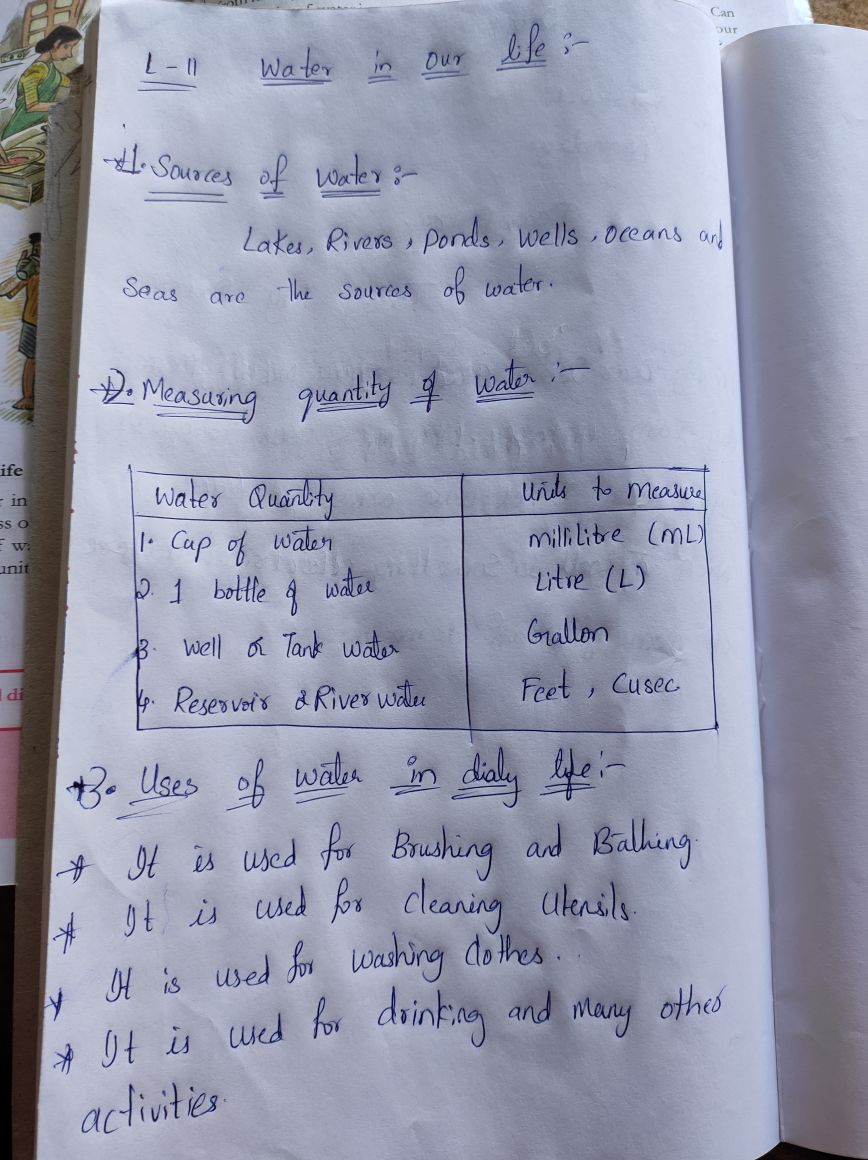 Can
our
L-11 Water in our life :-
*1. Sources of Water :-
Lakes, Rivers, Ponds, Wells, Oceans and
Seas are the sources of water.
*2. Measuring quantity of water :-
Water Quantity Units to measure
1. Cap of water millilitre (mL)
2. 1 bottle of water Litre (L)
3. Well or Tank water Grallon
4. Reservoir & River water Feet, Cusec
*3. Uses of water in dialy life :-
* It is used for Brushing and Bathing.
* It is used for cleaning Utensils.
* It is used for washing clothes.
* It is used for drinking and many other
activities.
ife
in
ss o
f w
unit
di